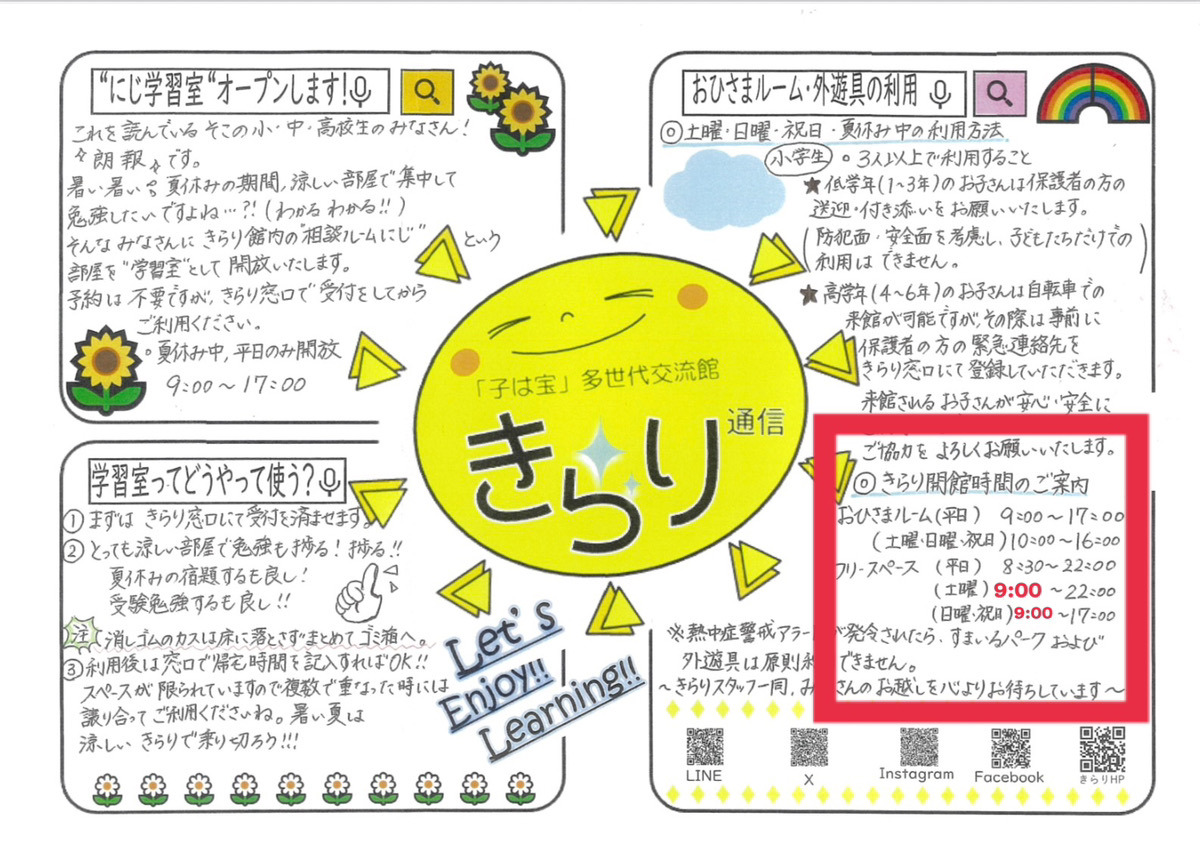 “にじ学習室“オープンします!
これを読んでいる そこの小・中・高校生のみなさん!
朗報 です。
暑い暑い 夏休みの期間,涼しい部屋で集中して
勉強したいですよね…?!(わかる わかる!!)
そんな みなさんに きらり館内の"相談ルームにじ"という
部屋を"学習室"として 開放いたします。
予約は 不要ですが,きらり窓口で受付をしてから
ご利用ください。
○夏休み中,平日のみ開放
9:00〜17:00
学習室ってどうやって使う?
① まずは きらり窓口にて受付を済ませます。
② とっても涼しい部屋で勉強も捗る!捗る!!
夏休みの宿題するも良し!
受験勉強するも良し!!
注 消しゴムのカスは床に落とさずまとめてゴミ箱へ。
③ 利用後は窓口で帰宅時間を記入すればOK!!
スペースが限られていますので複数で重なった時には
譲り合ってご利用くださいね。暑い夏は
涼しい きらりで乗り切ろう!!!
「子は宝」多世代交流館
きらり
通信
Let's
Enjoy!!
Learning!!
おひさまルーム・外遊具の利用
◎土曜・日曜・祝日・夏休み中の利用方法
小学生 ○3人以上で利用すること
★低学年(1〜3年)のお子さんは保護者の方の
送迎・付き添いをお願いいたします。
(防犯面・安全面を考慮し,子どもたちだけでの
利用は できません。)
★高学年(4〜6年)のお子さんは自転車での
来館が可能ですが,その際は事前に
保護者の方の緊急連絡先を
きらり窓口にて登録していただきます。
来館されるお子さんが安心・安全に
ご協力を よろしくお願いいたします。
◎きらり開館時間のご案内
おひさまルーム(平日) 9:00〜17:00
(土曜・日曜・祝日)10:00〜16:00
フリースペース (平日) 8:30〜22:00
(土曜)9:00〜22:00
(日曜・祝日)9:00〜17:00
※熱中症警戒アラートが発令されたら,すまいるパークおよび
外遊具は原則利 できません。
〜きらりスタッフ一同,み さんのお越しを心よりお待ちしています〜
LINE
X
Instagram
Facebook
きらりHP